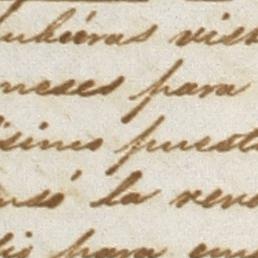 hubieras vist
meses para
isimo puest
usó la ven
para